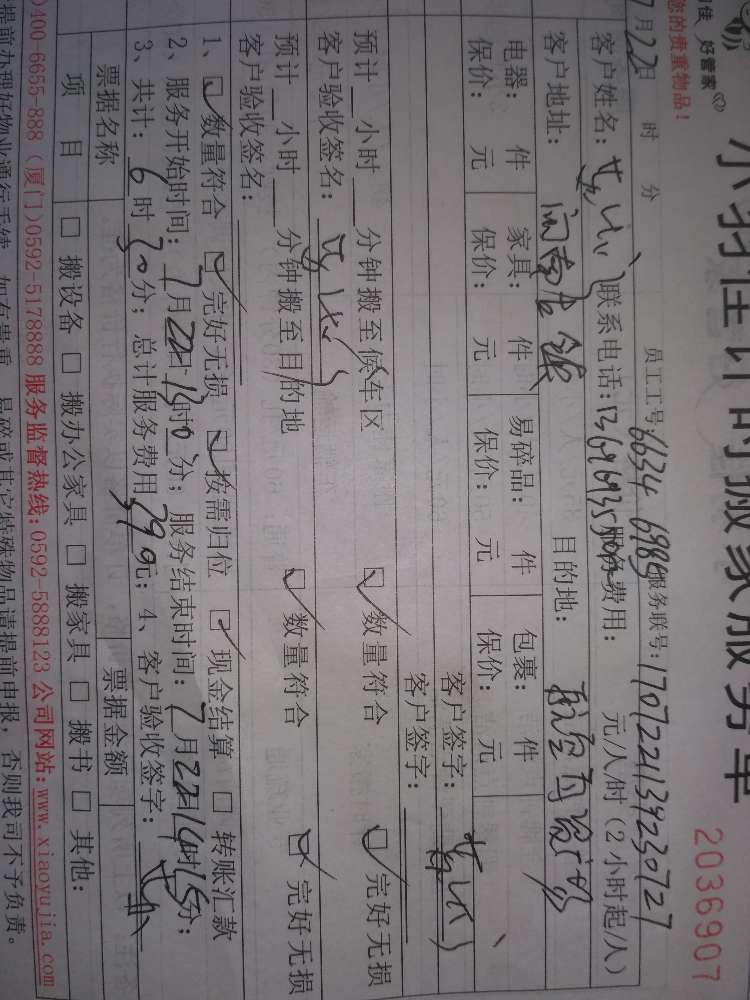 佳 好管家
您的贵重物品！
小羽佳计时搬家服务单
2036907
7月22日 时 分 员工工号 6634 6985 服务联号：1707221139230727
客户姓名： 联系电话： 服务费用： 元/人/时（2小时起/人）
客户地址： 闽南古镇 目的地：
电器： 件 家具： 件 易碎品： 件 包裹： 件
保价： 元 保价： 元 保价： 元 保价： 元
客户签字：
客户签字：
预计 小时 分钟搬至候车区 数量符合 完好无损
客户验收签名：
预计 小时 分钟搬至目的地 数量符合 完好无损
客户验收签名：
1、 数量符合 完好无损 按需归位 现金结算 转账汇款
2、服务开始时间：7月22日13时0分；服务结束时间：7月22日14时15分；
3、共计：6时30分；总计服务费用390元；4、客户验收签字：
票据名称 票据金额
项 目 搬设备 搬办公家具 搬家具 搬书 其他：
400-6655-888（厦门）0592-5178888 服务监督热线：0592-5888123 公司网站：www.xiaoyujia.com
提前办理好物业通行手续，如有贵重、易碎或其它特殊物品请提前申报，否则我司不予负责。